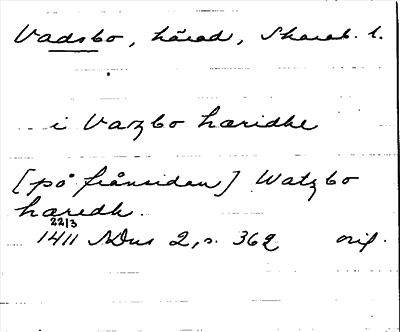 Vadsbo, härad, Skarab. l.
i Vazbo hæridhe
[på frånsidan] Watzbo
hæredh.
22/3
1411 NDns 2, s. 362 orig.